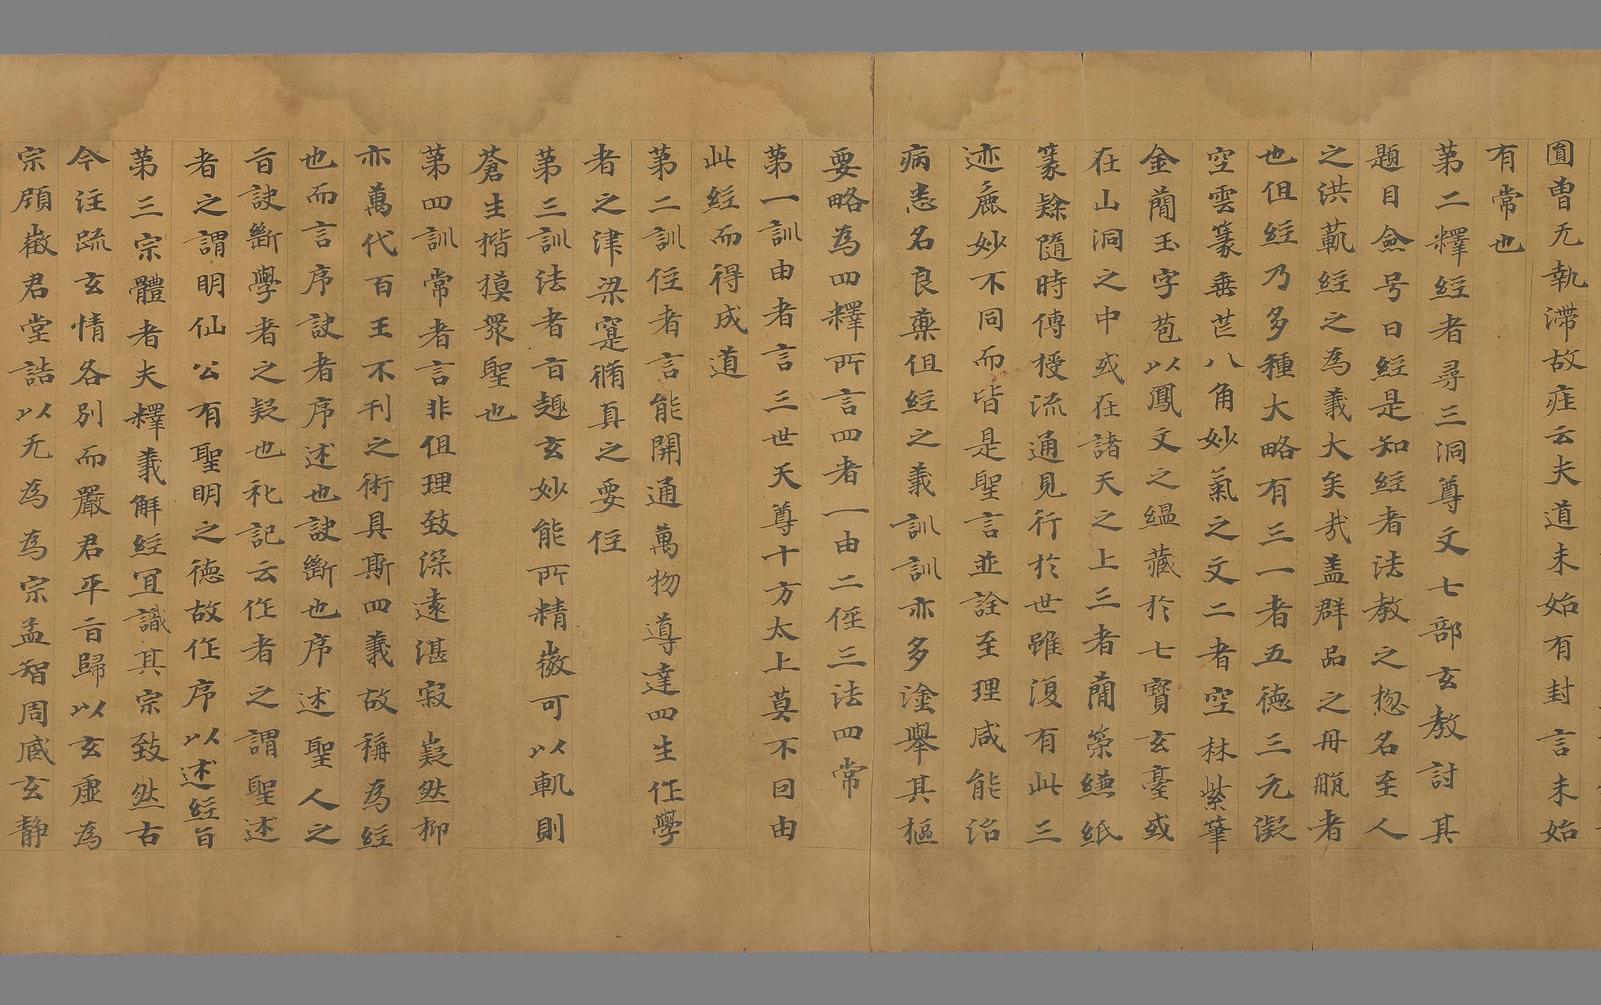 圓曽无執滯故莊云夫道未始有封言未始
有常也
第二釋經者尋三洞尊文七部玄教討其
題目僉号曰經是知經者法教之揔名至人
之洪範經之為義大矣哉盖群品之舟航者
也但經乃多種大略有三一者五徳三元凝
空雲篆垂芒八角妙氣之文二者空林紫筆
金蕳玉字苞以鳳文之緼藏於七寳玄臺或
在山洞之中或在諸天之上三者蕳䇿縑紙
篆隸隨時傳授流通見行於世雖復有此三
迹麁妙不同而皆是聖言並詮至理咸能治
病悉名良藥但經之義訓訓亦多塗舉其樞
要略為四釋所言四者一由二俓三法四常
第一訓由者言三世天尊十方太上莫不囙由
此經而得成道
第二訓俓者言能開通萬物導達四生作學
者之津梁寔脩真之要俓
第三訓法者言趣玄妙能所精微可以軌則
蒼生揩摸衆聖也
第四訓常者言非但理致深遠湛寂嶷然抑
亦萬代百王不刊之術具斯四義故稱為經
也而言序訣者序述也訣斷也序述聖人之
旨訣斷學者之疑也礼記云作者之謂聖述
者之謂明仙公有聖明之徳故作序以述經旨
第三宗體者夫釋義解經冝識其宗致然古
今注䟽玄情各別而嚴君平旨歸以玄虛為
宗顧徵君堂誥以无為為宗孟智周臧玄静